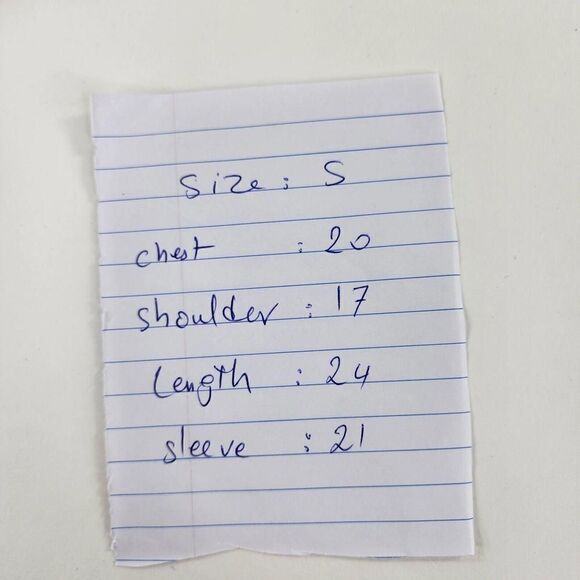 Size : S
chest : 20
shoulder : 17
Length : 24
sleeve : 21